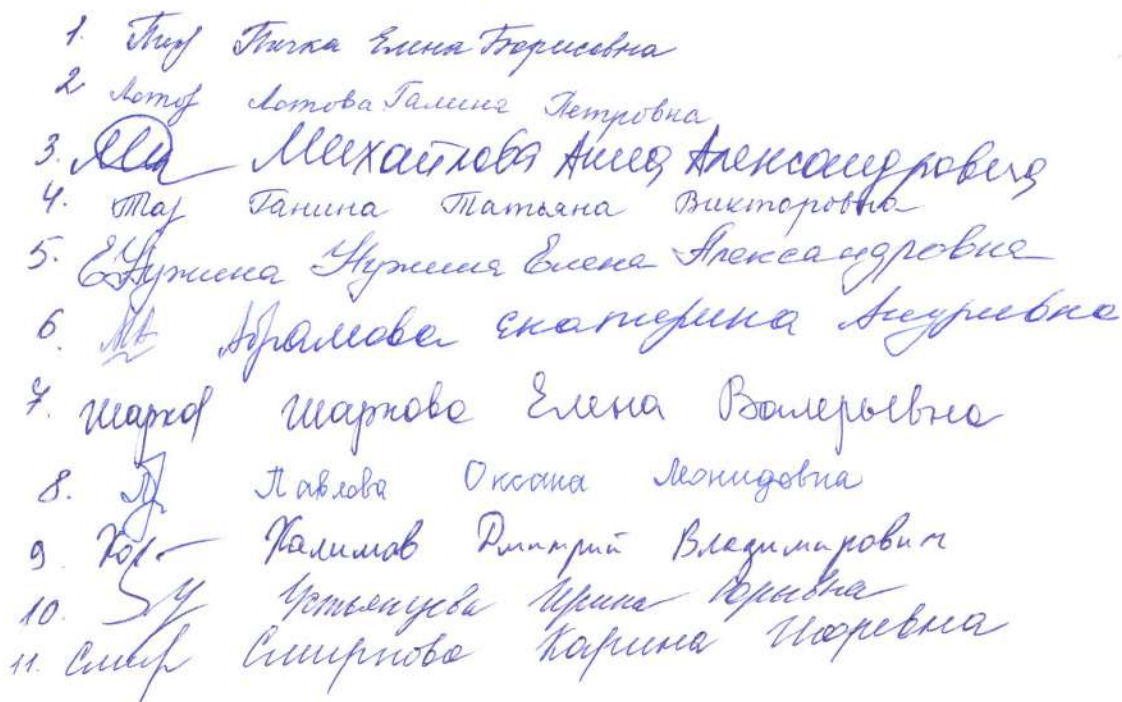 1. Пич Пичка Елена Борисовна
2 Лотов Лотова Галина Петровна
3. Михайлова Анна Александровна
4. Таг Ганина Татьяна Викторовна
5. ЕНужина Нужина Елена Александровна
6. Абрамова Екатерина Андреевна
7. Шарков Шаркова Елена Валерьевна
8. Павлова Оксана Леонидовна
9. Халимов Дмитрий Владимирович
10. Устьянцева Ирина Юрьевна
11. Смир Смирнова Карина Игоревна